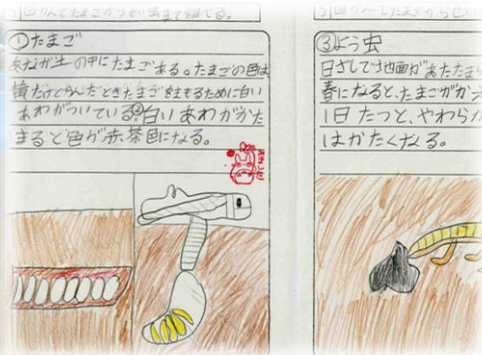 ①たまご
あなが土の中にたまごある。たまごの色は
黄だけどうんだときたまごをまもるために白い
あわがついている。白いあわがかた
まると色が赤茶色になる。
③よう虫
日ざしで地面があたたま
春になると、たまごがか
1日たつと、やわらか
はかたくなる。